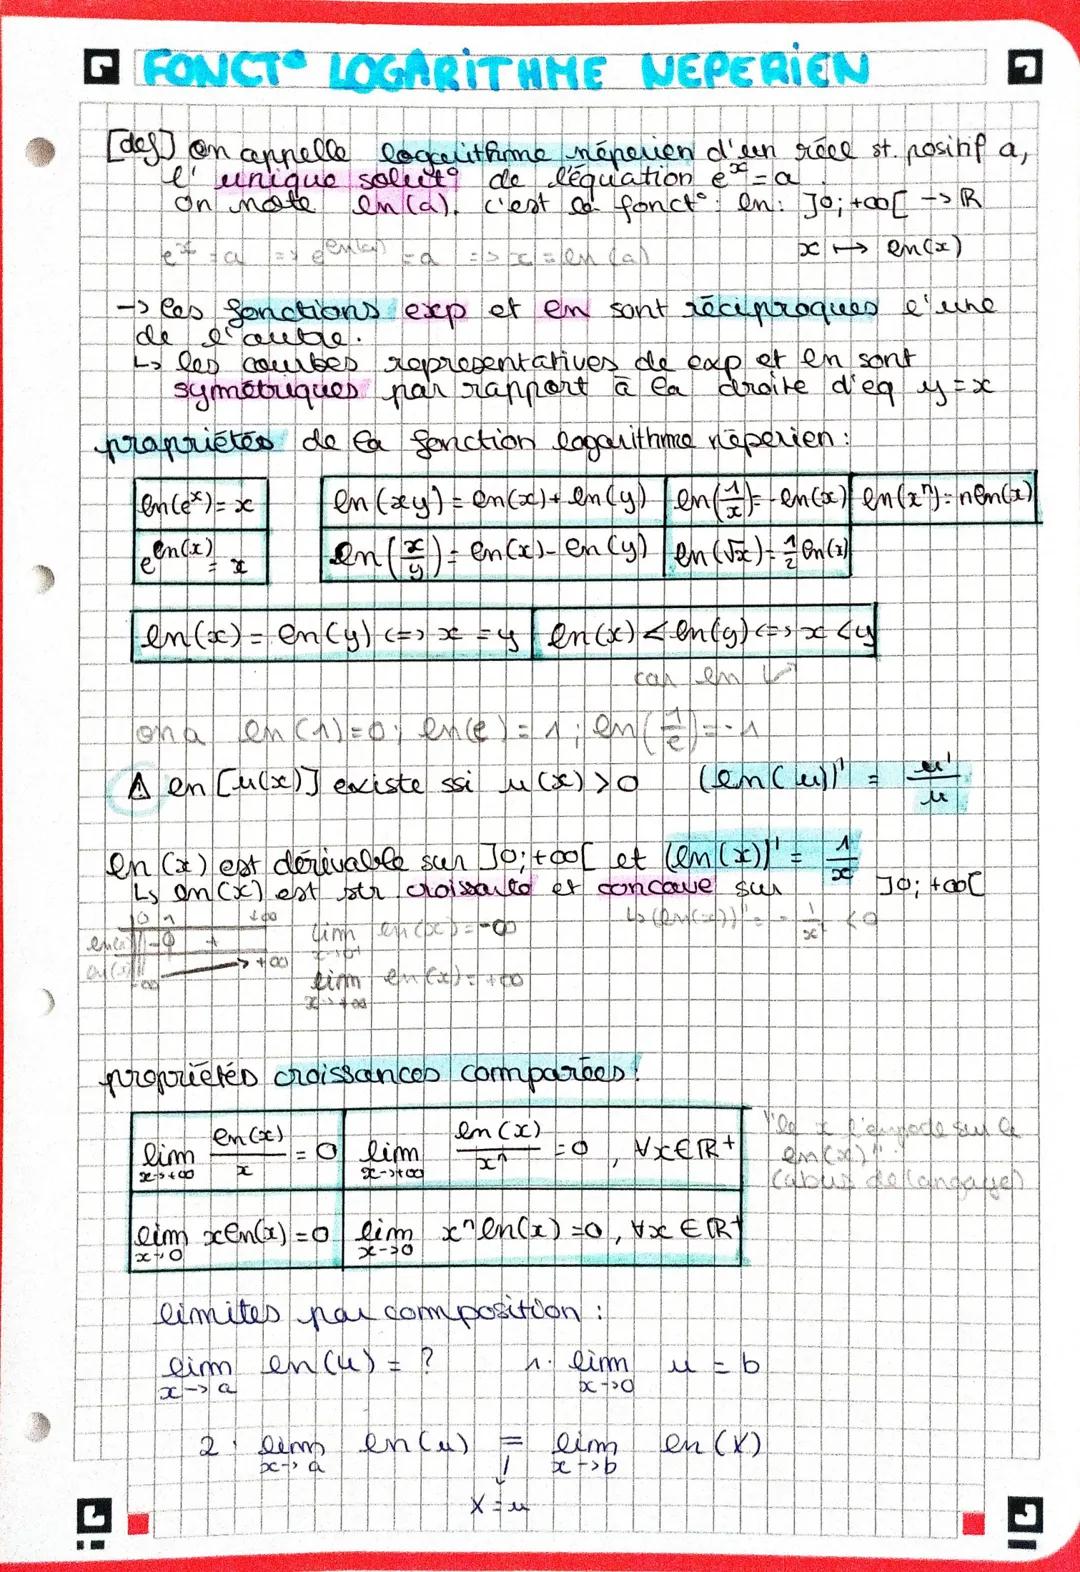 FONCT° LOGARITHME NEPERIEN
[def] on appelle logarithme néperien d'un réel st. positif a,
l'unique solut° de l'équation e^x = a.
On note ln(a). c'est la fonct°: ln: ]0;+∞[ -> ℝ
x ↦ ln(x)
e^x = a => e^ln(a) = a => x = ln(a)
-> les fonctions exp et ln sont réciproques l'une
de l'autre.
↳ les courbes representatives de exp et ln sont
symétriques par rapport à la droite d'eq y = x
propriétés de la fonction logarithme néperien :
ln(e^x) = x
ln(xy) = ln(x) + ln(y)
ln(1/x) = -ln(x)
ln(x^n) = nln(x)
e^ln(x) = x
ln(x/y) = ln(x) - ln(y)
ln(√x) = 1/2 ln(x)
ln(x) = ln(y) <=> x = y
ln(x) < ln(y) <=> x < y
car ln ↗
on a ln(1)=0 ; ln(e) = 1 ; ln(1/e) = -1
⚠ ln[u(x)] existe ssi u(x) > 0 (ln(u))' = u'/u
ln(x) est dérivable sur ]0;+∞[ et (ln(x))' = 1/x
↳ ln(x) est str croissante et concave sur ]0; +∞[
↳ (ln(x))'' = - 1/x² < 0
0 1 +∞
ln(x) - 0 +
ln(x) -∞ → +∞
lim x->0+ ln(x) = -∞
lim x->+∞ ln(x) = +∞
propriétés croissances comparées :
lim x->+∞ ln(x)/x = 0
lim x->+∞ ln(x)/x^n = 0, ∀x∈ℝ+
"le x l'emporte sur le
ln(x)"
(abus de langage)
lim x->0 xln(x) = 0
lim x->0 x^n ln(x) = 0, ∀x ∈ ℝ+
limites par composition :
lim x->a ln(u) = ? 1. lim x->0 u = b
2. lim x->a ln(u) = lim x->b ln(X)
X = u